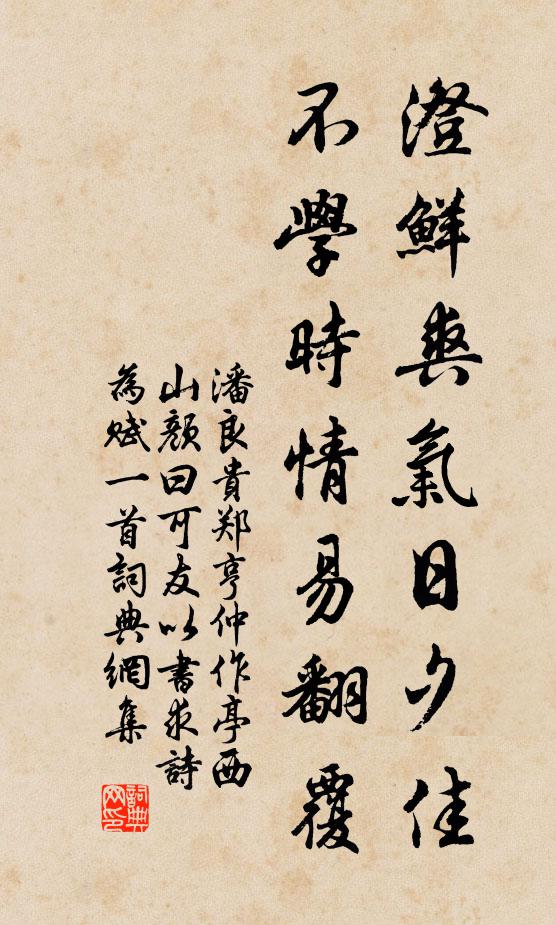 澄鮮爽氣日夕佳
不學時情易翻覆
潘良貴郑亨仲作亭西
山顏曰可友以書求詩
為賦一首詞典網集
詞典网印